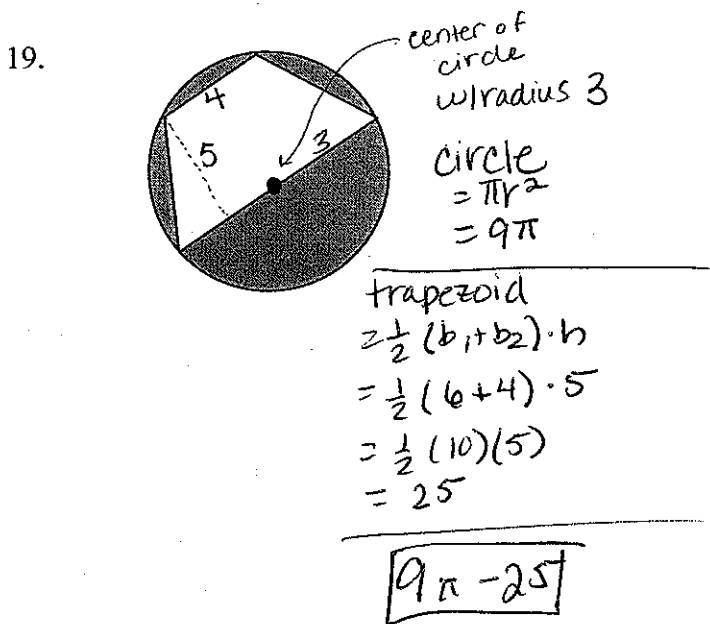 19.
center of
circle
w/radius 3
4
5
3
circle
= πr²
= 9π
trapezoid
= ½ (b₁+b₂)·h
= ½ (6+4) · 5
= ½ (10)(5)
= 25
9π - 25